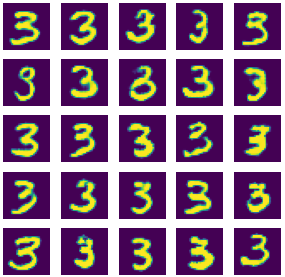 3 3 3 3 3
3 3 3
3 3 3 3 3
3 3 3 3 3
3 3 3 3 3